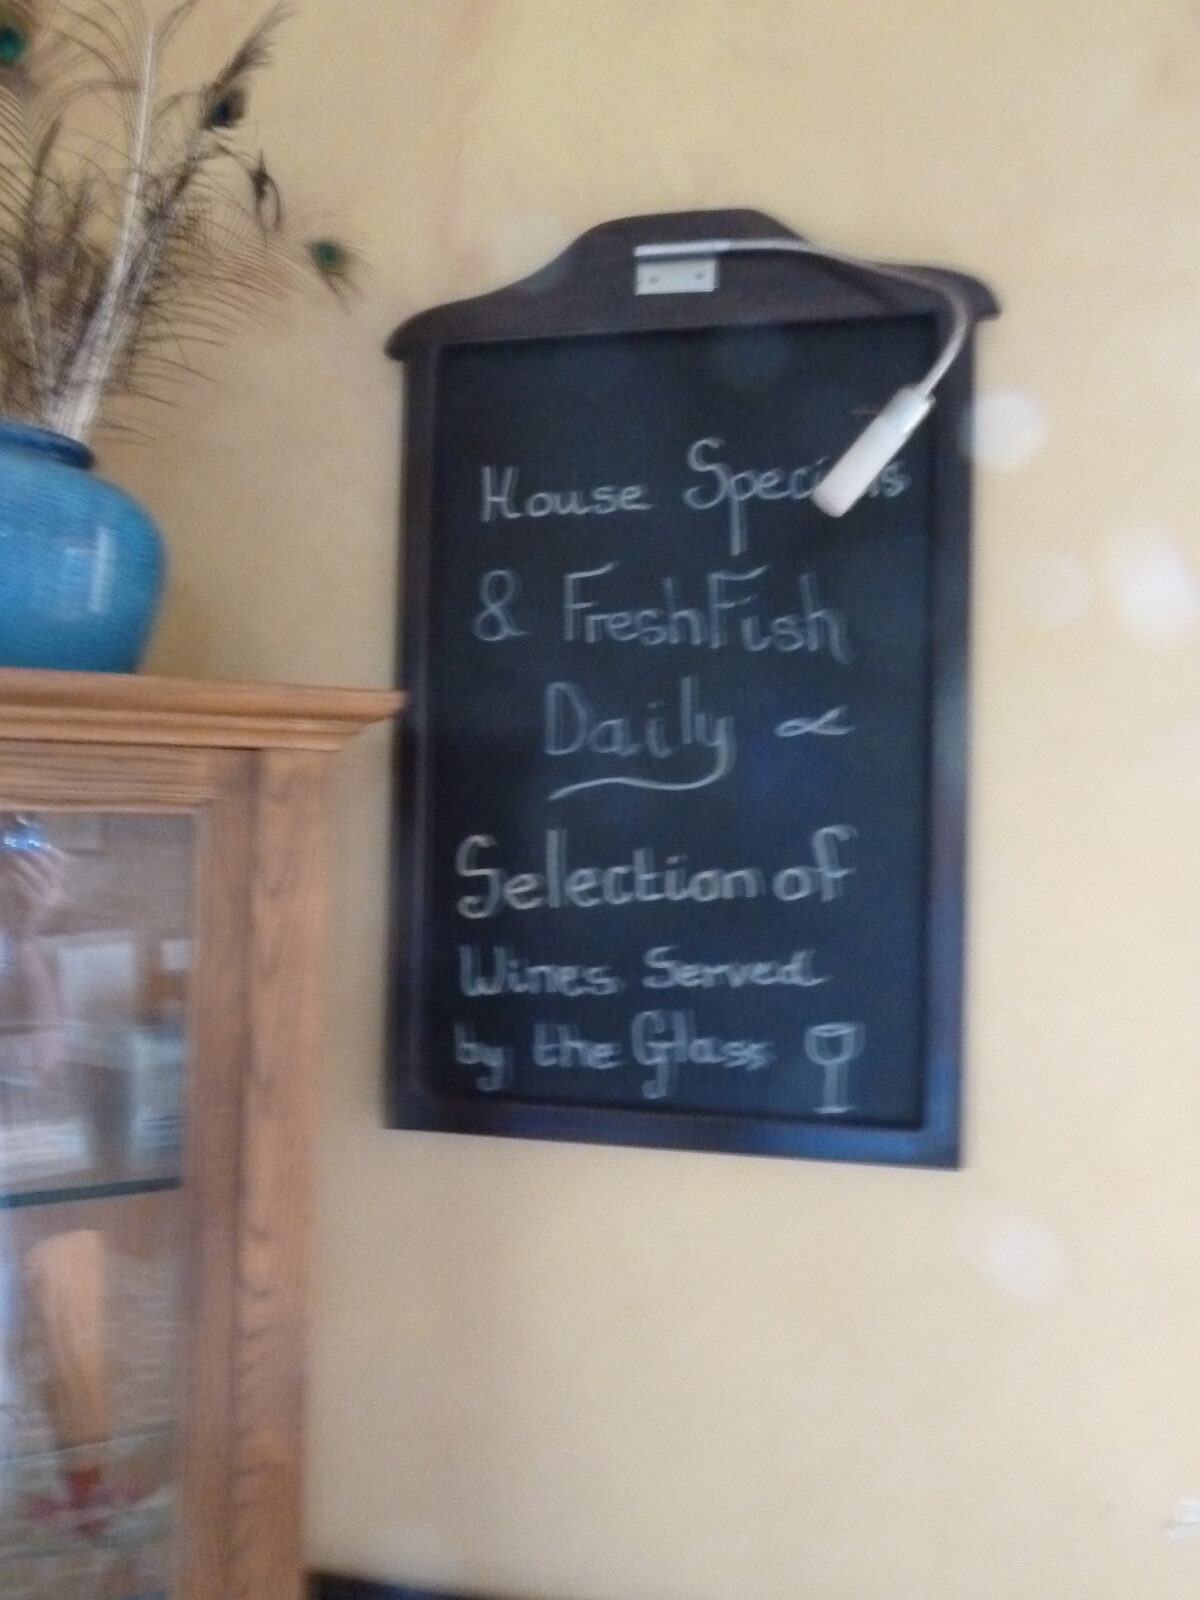 House Specials
& Fresh Fish
Daily ∝
Selection of
Wines Served
by the Glass